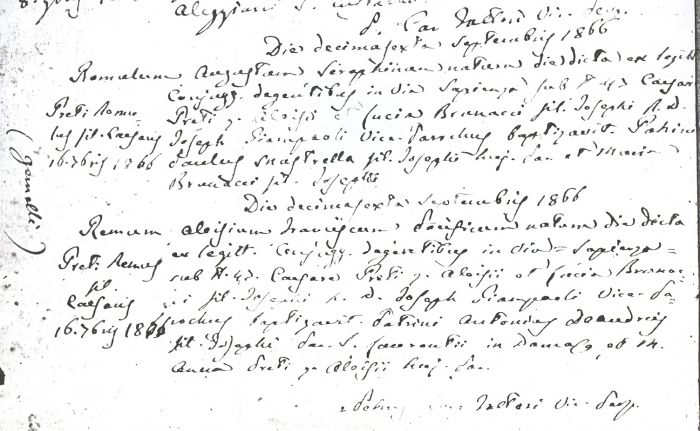 P. Can
Die decimasexta Septembris 1866
Romulum Augustum Seraphinum natum die dicta ex legitt.
Conjugg. degentibus in via Sapienza sub N. 42 Caesar
Preti q. Aloisii et Lucia Brunacci fil. Josephi R. D.
Joseph Giampaoli Vice-Parochus baptizavit. Patrini
Paulus fil. Josephi huj. Par. et Maria
Brunacci fil. Josephi
Preti Romu-
lus fil. Caesaris
16. 7bris 1866
(gemelli)
Die decimasexta Septembris 1866
Remum Aloisium Franciscum natum die dicta
ex legitt. Conjugg. degentibus in via Sapienza
sub N. 42. Caesare Preti q. Aloisii et Lucia Brunac-
ci fil. Josephi R. D. Joseph Giampaoli Vice-Pa-
rochus baptizavit. Patrini Antonius Deandreis
fil. Josephi Par. S. Laurentii in Damaso, et
Anna Preti q. Aloisii huj. Par.
Preti Remus
fil.
Caesaris
16. 7bris 1866